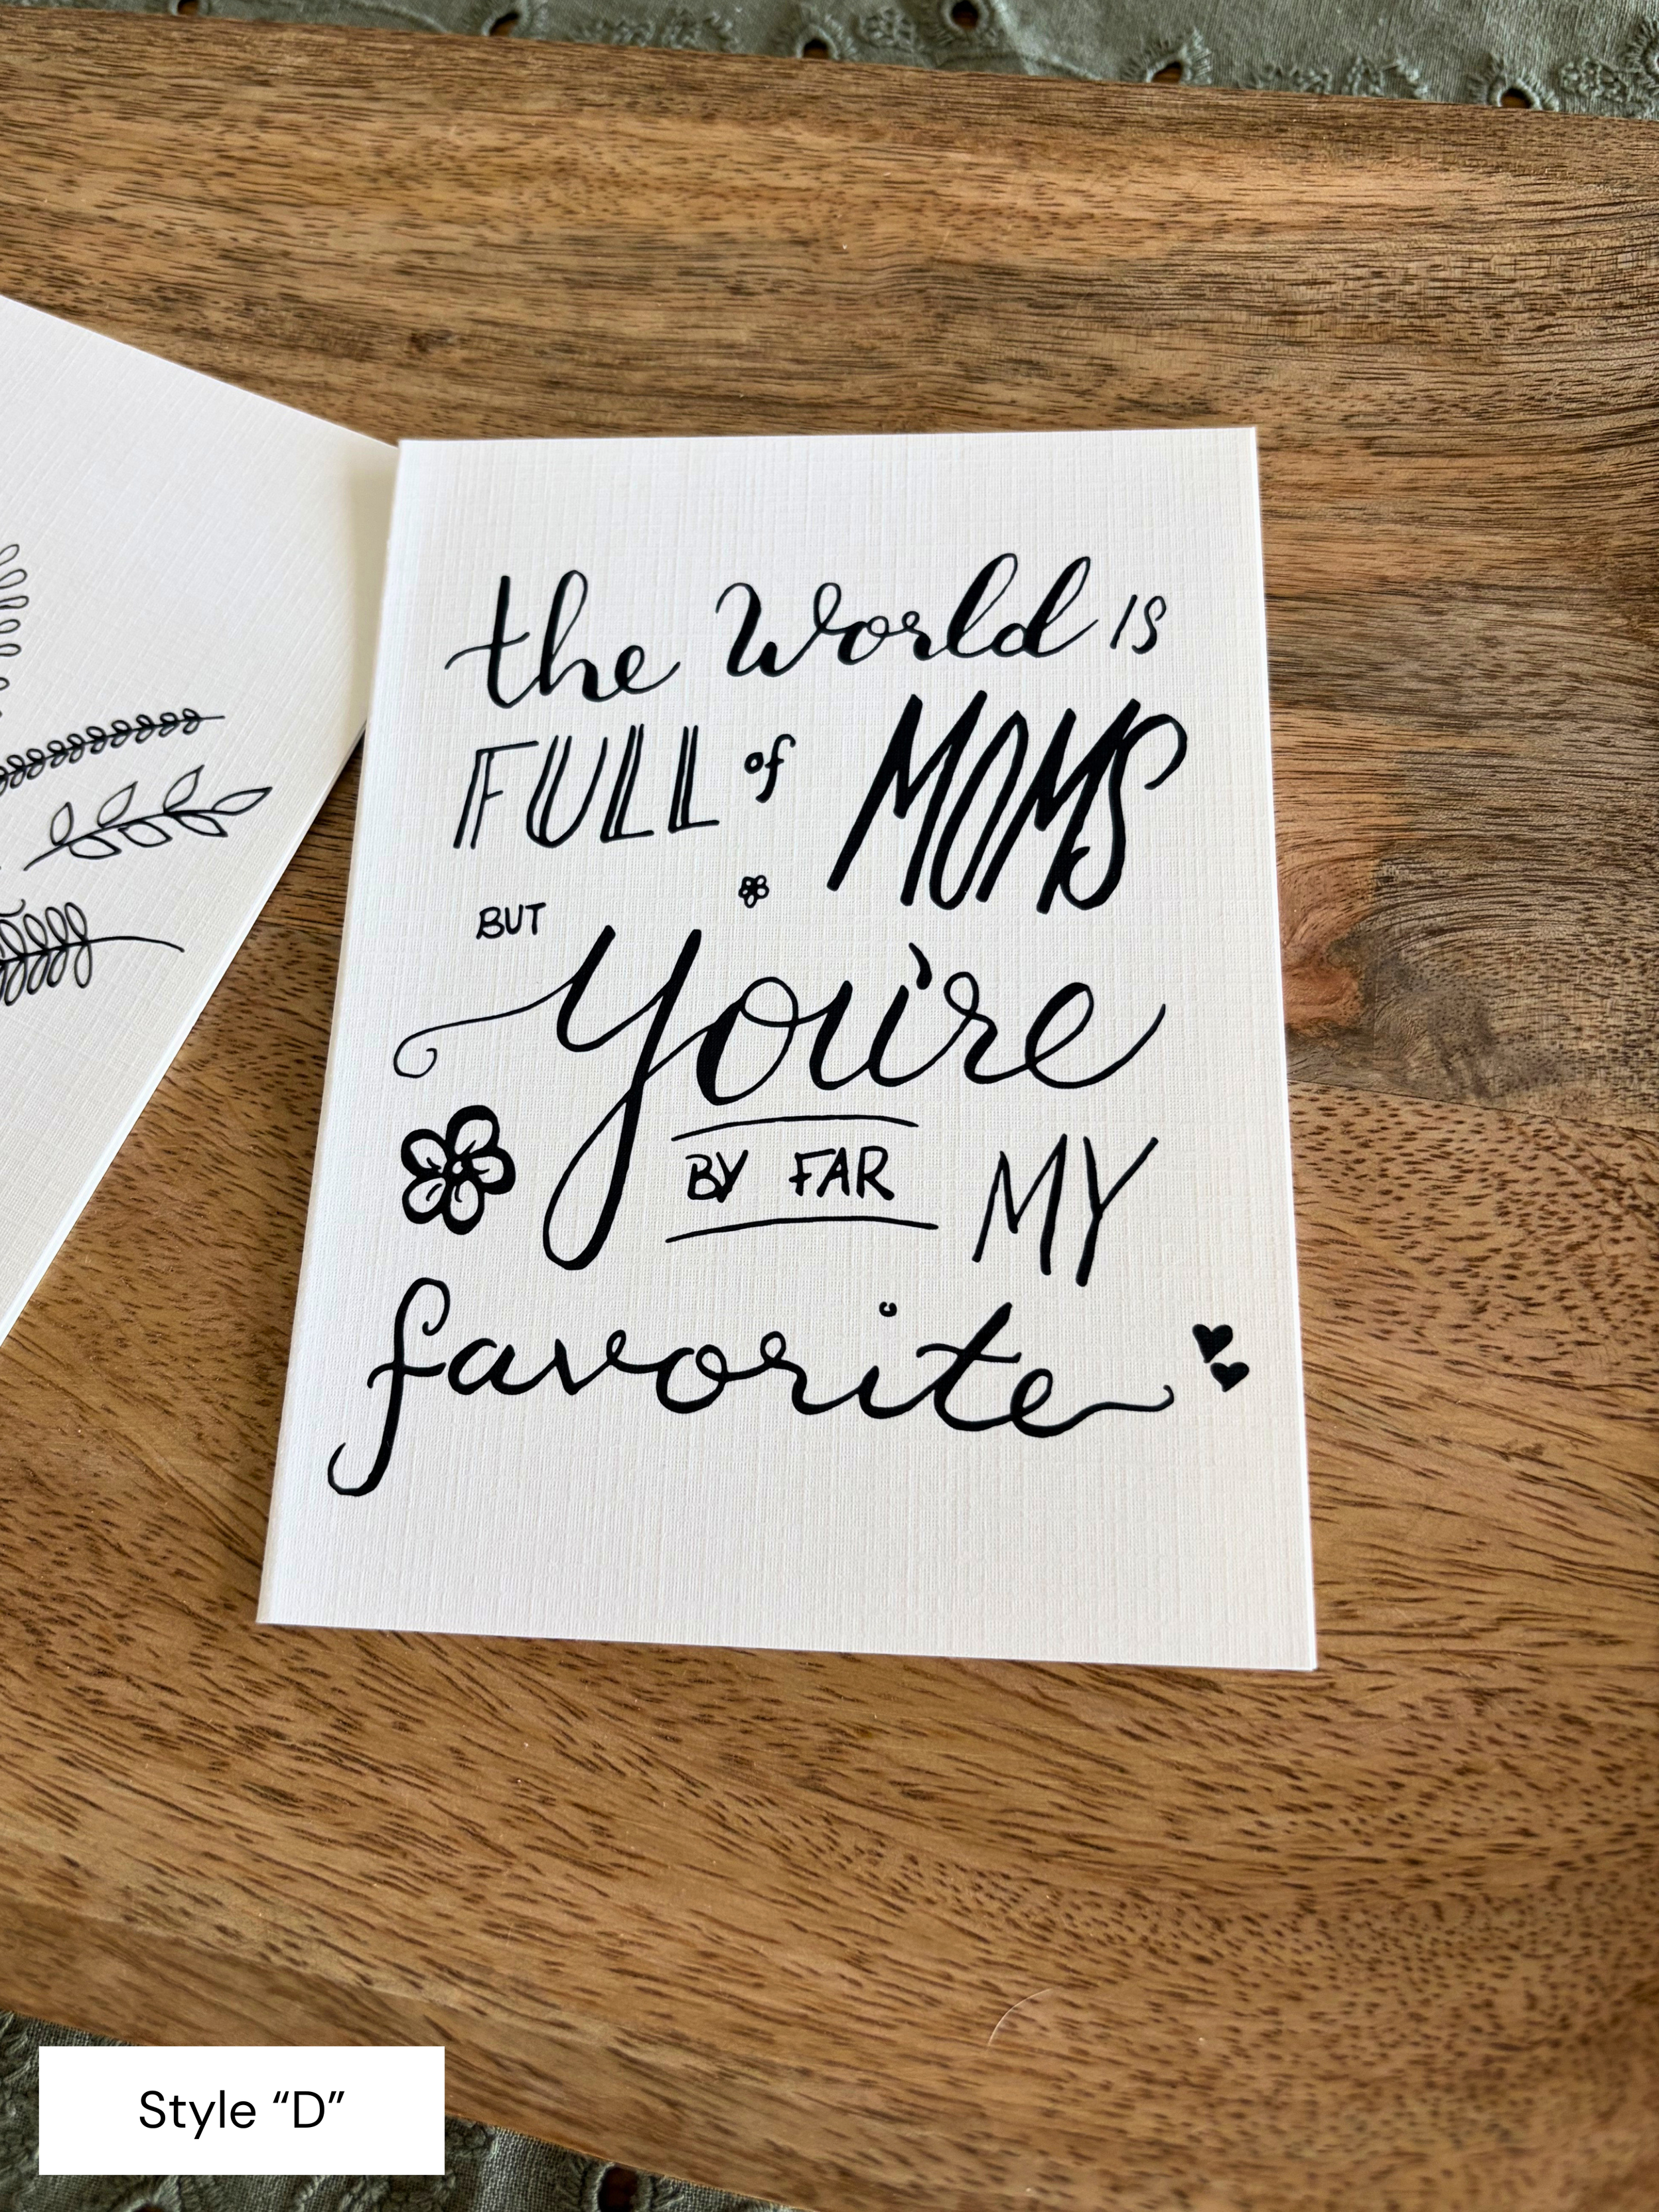 the World is
FULL of MOMS
BUT
you're
BY FAR MY
favorite
Style “D”